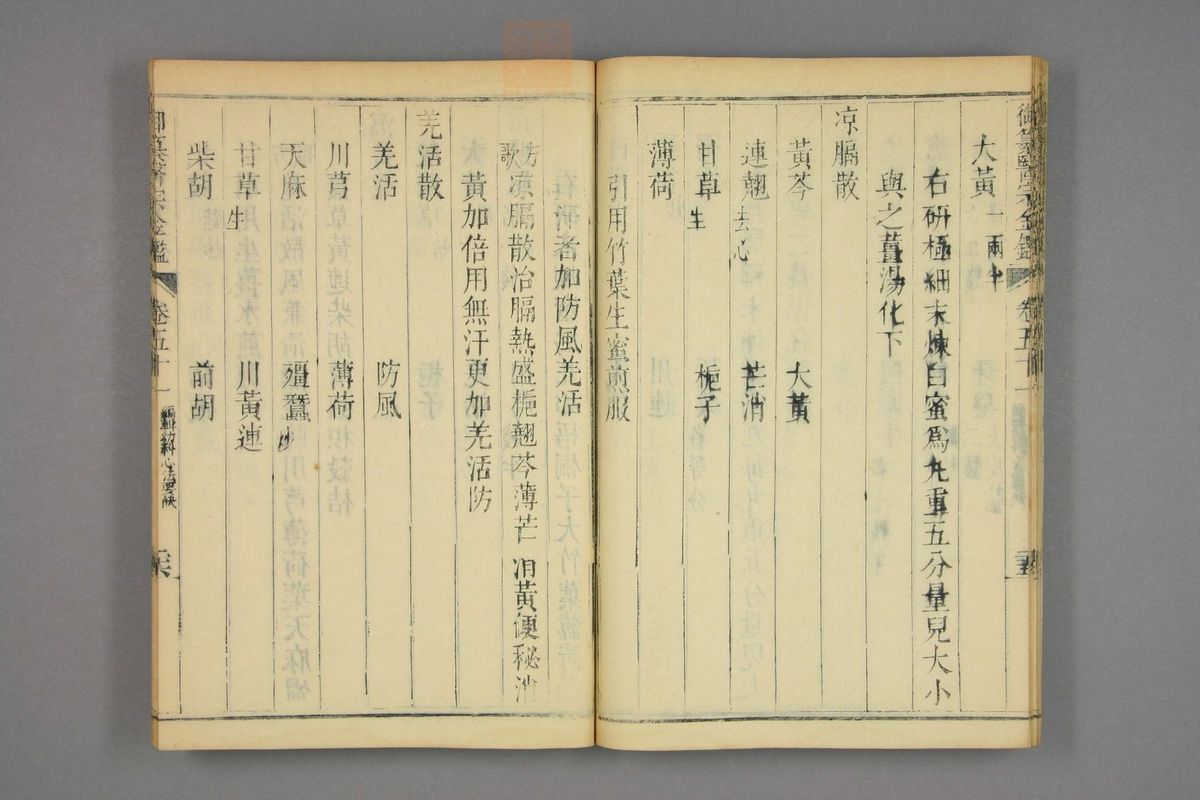 御纂醫宗金鑑 卷五十一
大黃一兩半
右研極細末煉白蜜爲丸重五分量兒大小
與之薑湯化下
凉膈散
黃芩 大黃
連翹去心 芒消
甘草生 梔子
薄荷
引用竹葉生蜜煎服
消者加防風羌活
方歌 凉膈散治膈熱盛梔翹芩薄芒消黃便秘消
黃加倍用無汗更加羌活防
羌活散
羌活 防風
川芎 薄荷
天麻 殭蠶炒
甘草生 川黃連
柴胡 前胡
御纂醫宗金鑑 卷五十一 編輯幼科心法要訣